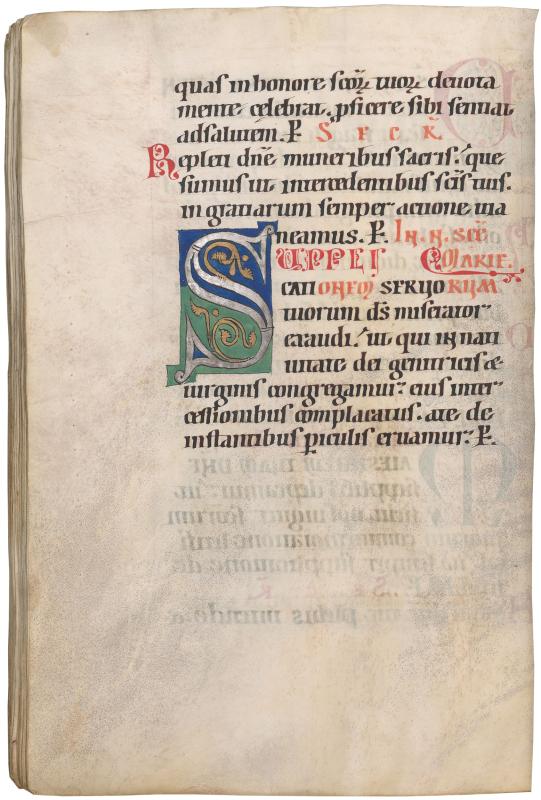 quas in honore sc̄oꝝ tuoꝝ deuota
mente celebrat. ꝓficere sibi sentiat
ad salutem. P̄.
Repleti dn̄e muneribus sacris. que
sumus ut intercedentibus sc̄is tuis.
in gratiarum semper actione ma
neamus. P̄. In N. sc̄e
SUPPLI MARIE.
CATIONEM SERUORUM
tuorum ds̄ miserator
exaudi. ut qui in nati
uitate dei genitricis &
uirginis congregamur. eius inter
cessionibus complacatus. a te de
instantibus ꝑiculis eruamur. P̄.